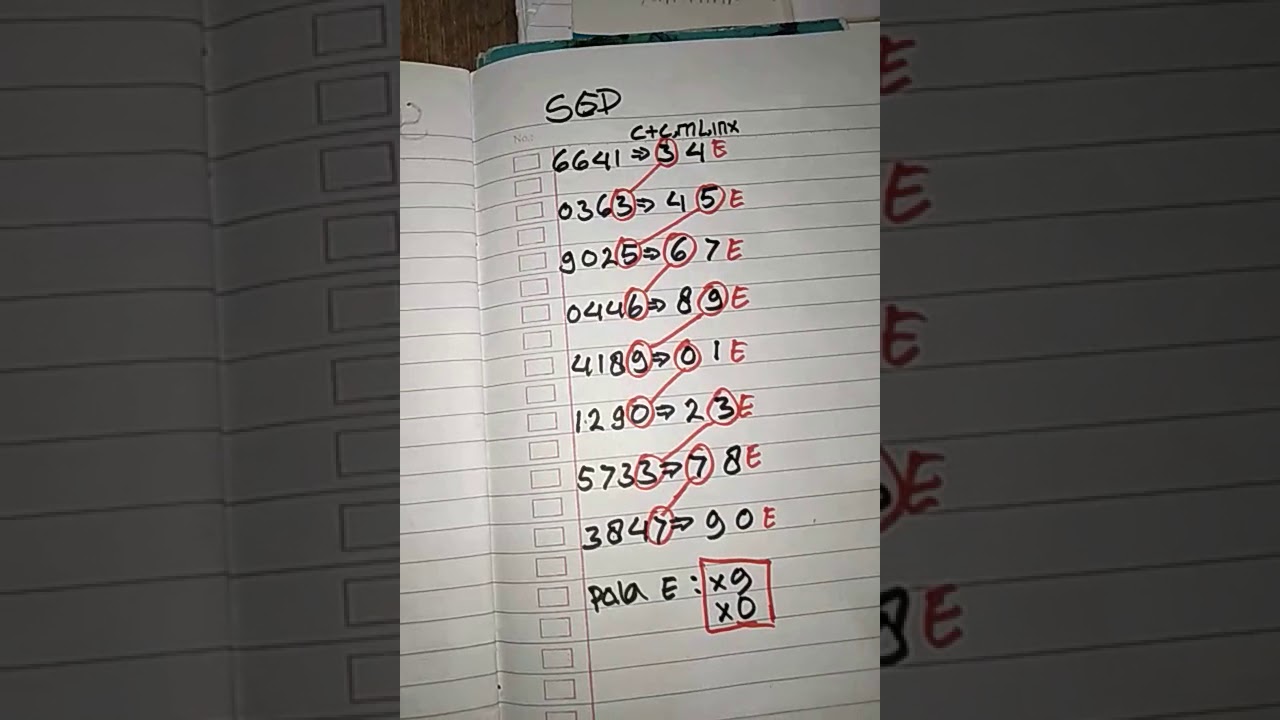 SGD
No.:
C+C.ML.inx
6641 ⇒ 3 4 E
0363 ⇒ 4 5 E
9025 ⇒ 6 7 E
0446 ⇒ 8 9 E
4189 ⇒ 0 1 E
1290 ⇒ 2 3 E
5733 ⇒ 7 8 E
3847 ⇒ 9 0 E
Pala E : x9
x0